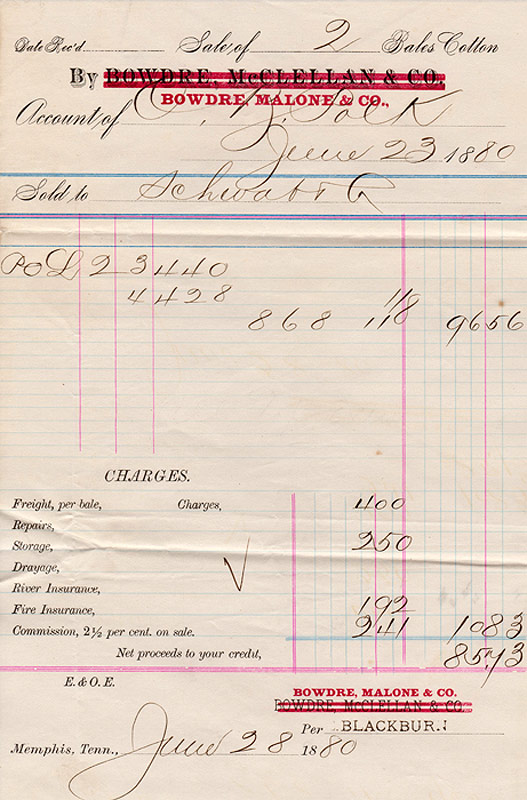 Date Rec'd Sale of 2 Bales Cotton
By BOWDRE, McCLELLAN & CO.
BOWDRE, MALONE & CO.,
Account of Polk
June 23 1880
Sold to Schwab & Co
POL 2 3 440
4 428
118
868 118 9656
CHARGES.
Freight, per bale, Charges, 400
Repairs,
Storage, 250
Drayage,
River Insurance,
Fire Insurance, 192
Commission, 2½ per cent. on sale. 241 1083
Net proceeds to your credit, 8573
E. & O. E.
BOWDRE, MALONE & CO.
BOWDRE, McCLELLAN & CO.
Per BLACKBURN
Memphis, Tenn., June 28 1880